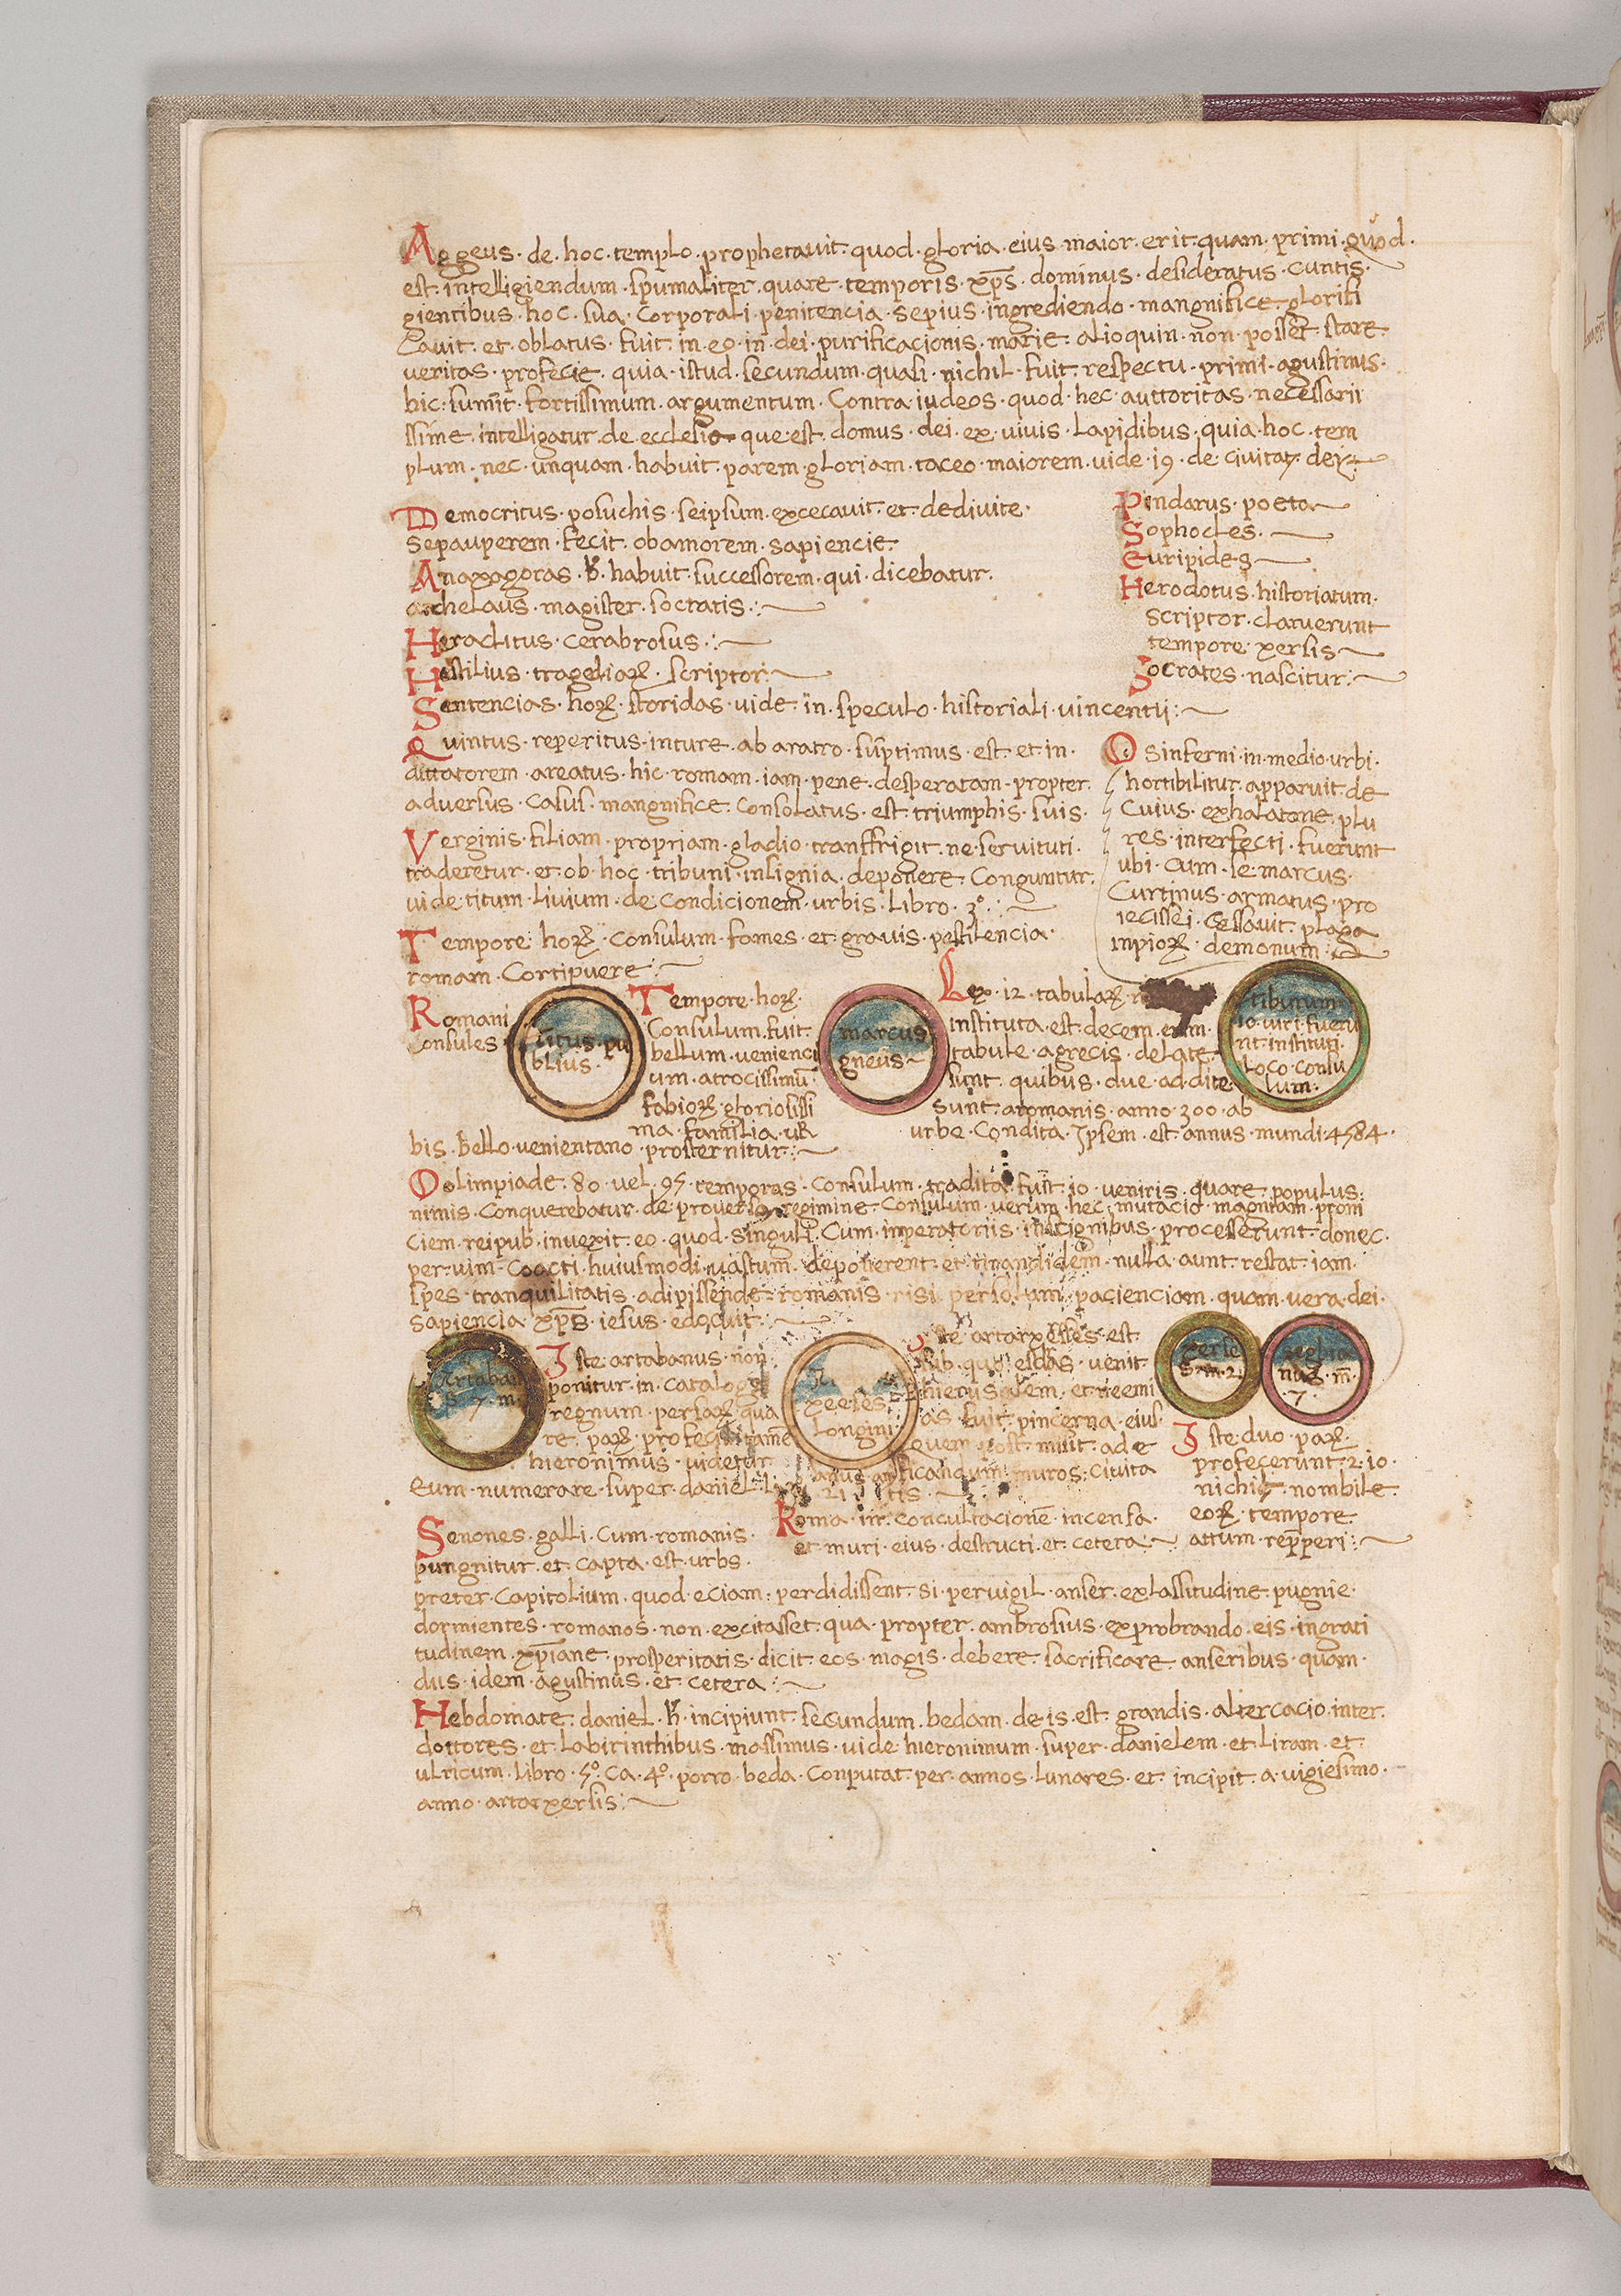 Aggeus · de · hoc · templo · prophetauit · quod · gloria · eius · maior · erit · quam · primi · quod ·
est · intelligiendum · spumaliter · quare · temporis · xp̄s · dominus · desideratus · cuntis ·
gientibus · hoc · sua · corporali · penitencia · sepius · ingrediendo · mangnifice · glorifi
cauit · et · oblatus · fuit · in · eo · in · dei · purificacionis · marie · alioquin · non · posset · stare ·
ueritas · profecie · quia · istud · secundum · quasi · nichil · fuit · respectu · primi · agustinus ·
hic · sumit · fortissimum · argumentum · Contra · iudeos · quod · hec · auttoritas · necessarii
ssime · intelligatur · de · ecclesia · que · est · domus · dei · ex · uiuis · lapidibus · quia · hoc · tem
plum · nec · unquam · habuit · parem · gloriam · taceo · maiorem · uide · 19 · de · ciuitat · dei
Democritus · posuchis · seipsum · excecauit · et · dediuite ·
sepauperem · fecit · obamorem · sapiencie ·
Anaxagoras · habuit · successorem · qui · dicebatur ·
archelaus · magister · socratis :
Heraclitus · cerabrosus :
Hestilius · tragediaꝝ · scriptor :
Pindarus · poeta
Sophocles ·
Euripides
Herodotus · historiatum ·
scriptor · claruerunt
tempore · xersis
Socrates · nascitur :
Sentencias · hoꝝ · storidas · uide · in · speculo · historiali · uincentii :
Quintus · reperitus · inture · ab aratro · sūptimus · est · et · in ·
dittatorem · areatus · hic · romam · iam · pene · desperatam · propter ·
aduersus · casus · mangnifice · consolatus · est · triumphis · suis ·
Verginis · filiam · propriam · gladio · transfrigit · ne · seruituti ·
traderetur · et · ob · hoc · tribuni · insignia · deponere · conguntur ·
uide · titum · liuium · de · condicionem · urbis · libro · 3º ·
Tempore · hoꝝ · consulum · fames · et · grauis · pestilencia ·
romam · corripuere :
Os inferni · in · medio · urbi ·
horribilitur · apparuit · de
cuius · exhalatone · plu
res · interfecti · fuerunt
ubi · cum · se · marcus ·
Curtinus · armatus · pro
iecissei · cessauit · plaga
inpioꝝ · demonum :
Romani
consules
Titus · pu
blius ·
Tempore · hoꝝ ·
Consulum · fuit ·
bellum · uenienci
um · atrocissimū ·
fabioꝝ · gloriosissi
ma · familia · uR
bis · bello · uenientano · prosternitur :
marcus
gneus
Lex · 12 · tabulaꝝ ·
instituta · est · decem · enim ·
tabule · agrecis · delate ·
sunt · quibus · due · ad · dite
sunt · aromanis · anno · 300 · ab
urbe · condita · Ipsem · est · annus · mundi · 4584 ·
tributum
10 · uiri · fueru
nt · instituti ·
loco · consu
lum ·
Oolimpiade · 80 · uel · 95 · temporas · consulum · tradita · fuit · 10 · ueniris · quare · populus :
nimis · conquerebatur · de · regimine · consulum · uerum · hec · mutacio · magnam · proni
ciem · reipub · inuexit · eo · quod · singuli · cum · inperatoriis · insignibus · processerunt · donec ·
per · uim · coacti · huiusmodi · deponerent · et · nulla · aunt · restat · iam ·
spes · tranquilitatis · adipissende · romanis · risi · pacienciam · quam · uera · dei ·
sapiencia · xp̄s · iesus · edocuit :
Artaban
7 · m
Iste · artabanus · non
ponitur · in · catalogo
regnum · persaꝝ · qua
re · paꝝ ·
hieronimus · uidetur
eum · numerare · super · daniel ·
xerses
longini
Iste · artarxesses · est
sub · quo · esdras · uenit ·
hierusalem · et · neemi
as · fuit · pincerna · eius ·
quem · post · misit · ad e
muros : ciuita
tis ·
xerse
S · m · 2 ·
nus · m̄
· 7 ·
Iste · duo · paꝝ ·
profecerunt · 2 · 10 ·
nichil · nombile
eoꝝ · tempore
attum · repperi :
Senones · galli · cum · romanis ·
pungnitur · et · capta · est · urbs ·
Roma · in · concultacionē · incensa ·
et · muri · eius · destructi · et · cetera
preter · capitolium · quod · eciam : perdidissent · si · peruigil · anser · exlassitudine · pugnie ·
dormientes · romanos · non · excitasset · qua · propter · ambrosius · exprobrando · eis · ingrati
tudinem · xp̄iane · prosperitatis · dicit · eos · magis · debere · sacrificare · anseribus · quam ·
dus · idem · agustinus · et · cetera :
Hebdomate · daniel · incipiunt · secundum · bedam · de · is · est · grandis · altercacio · inter ·
dottores · et · labirinthibus · massimus · uide · hieronimum · super · danielem · et · liram · et ·
ulricum · libro · 5º · ca · 4º · porro · beda · conputat · per · annos · lunares · et · incipit · a · uigiesimo ·
anno · artarxersis :